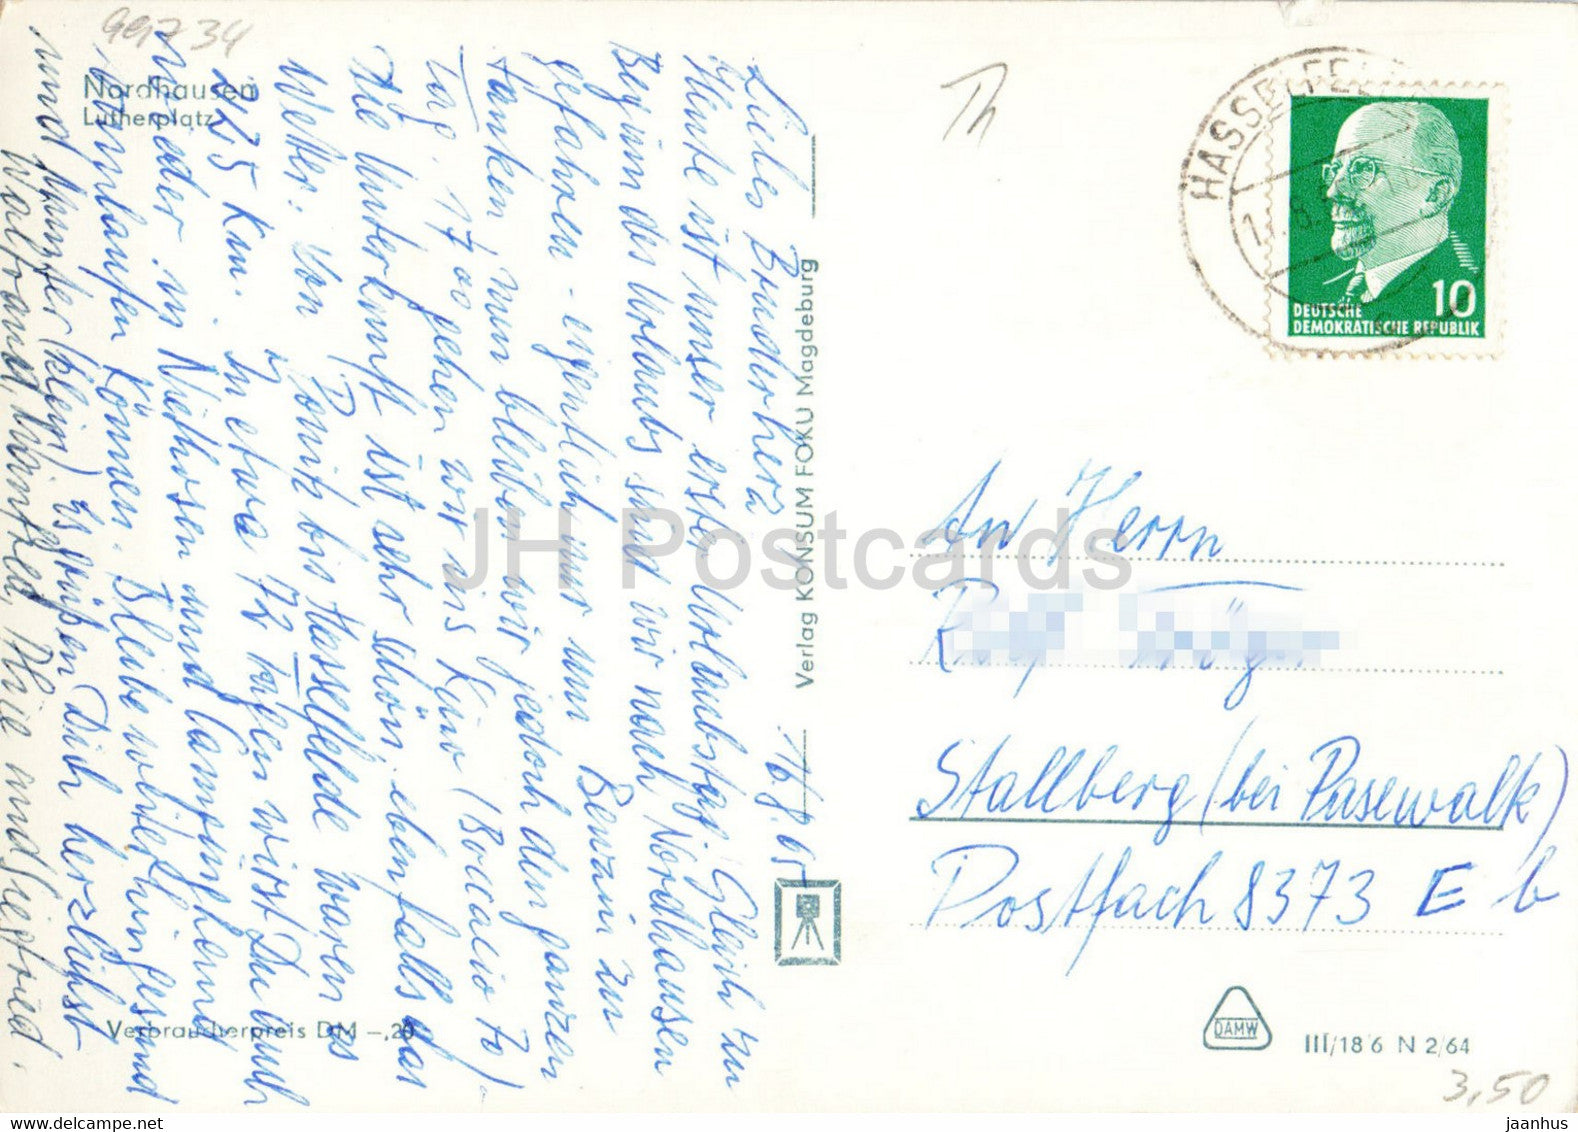 99734
Nordhausen
Lutherplatz
16.8.65
Liebes Bruderherz!
Heute ist unser erster Urlaubstag. Gleich zu
Beginn des Urlaubs sind wir nach Nordhausen
gefahren - eigentlich nur um Benzin zu
tanken, nun bleiben wir jedoch den ganzen
Tag. 17 00 gehen wir ins Kino (Boccacio 70).
Die Unterkunft ist sehr schön, ebenfalls das
Wetter. Von Ponitz bis Hasselfelde waren es
225 Km. In etwa 72 Tagen wirst Du auch
wieder in Niethosen und
rumlaufen können. Bleibe weiterhin gesund
und munter (klein) Es grüßen Dich herzlichst
Waltraud, Winfried, und Siegfried.
Verbraucherpreis DM -,20
Verlag KONSUM FOKU Magdeburg
HASSELFEL
DEUTSCHE
DEMOKRATISCHE REPUBLIK
10
Th
An Herrn
Stallberg (bei Pasewalk)
Postfach 8373 E b
DAMW
III/18 6 N 2/64
3,50
JH Postcards
www.delcampe.net
jaanhus